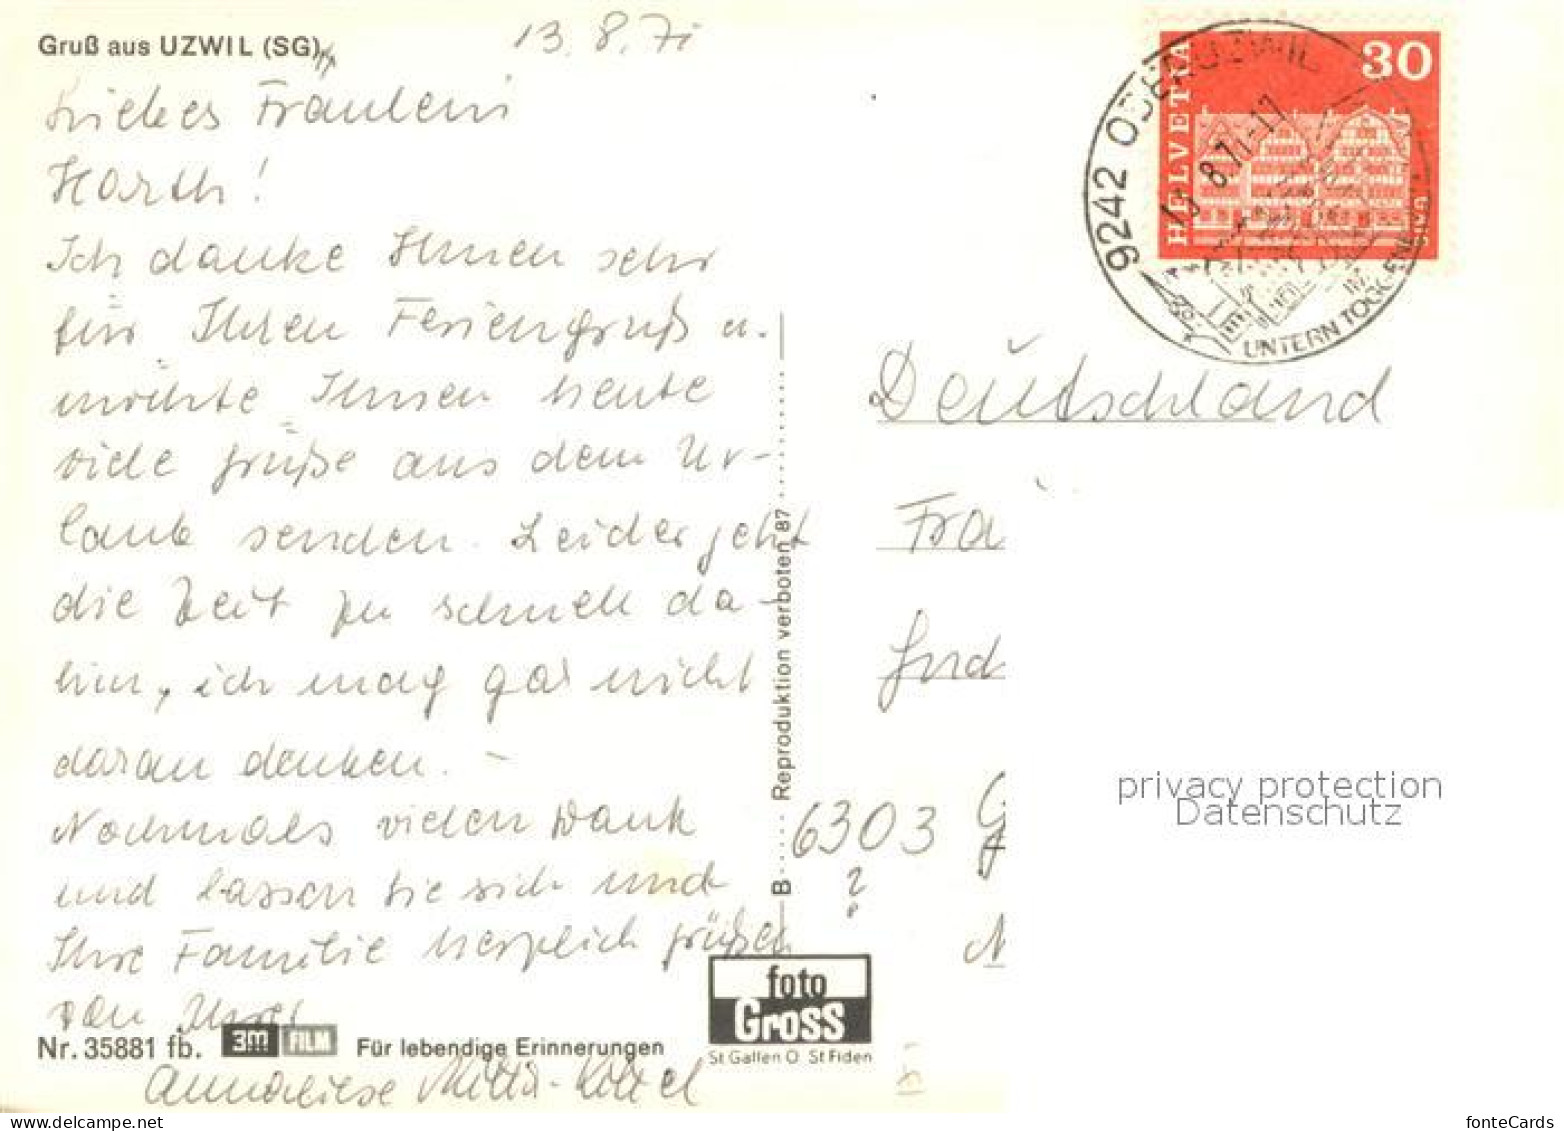 Gruß aus UZWIL (SG)
13.8.71
Liebes Fräulein
Horth!
Ich danke Ihnen sehr
für Ihren Feriengruß u.
möchte Ihnen heute
viele Grüße aus dem Ur-
laub senden. Leider geht
die Zeit zu schnell da-
hin, ich mag gar nicht
daran denken. –
Nochmals vielen Dank
und lassen Sie sich und
Ihre Familie herzlich grüßen
von Ihrer
Annaliese
Nr. 35881 fb. 3m FILM Für lebendige Erinnerungen
B Reproduktion verboten 87
foto
Gross
St Gallen O St Fiden
HELVETIA 30
9242 OBERUZWIL
13. 8.71-17
UNTERNTOGGEN
Deutschland
Frä
6303 G
?
N
privacy protection
Datenschutz
www.delcampe.net
fonteCards